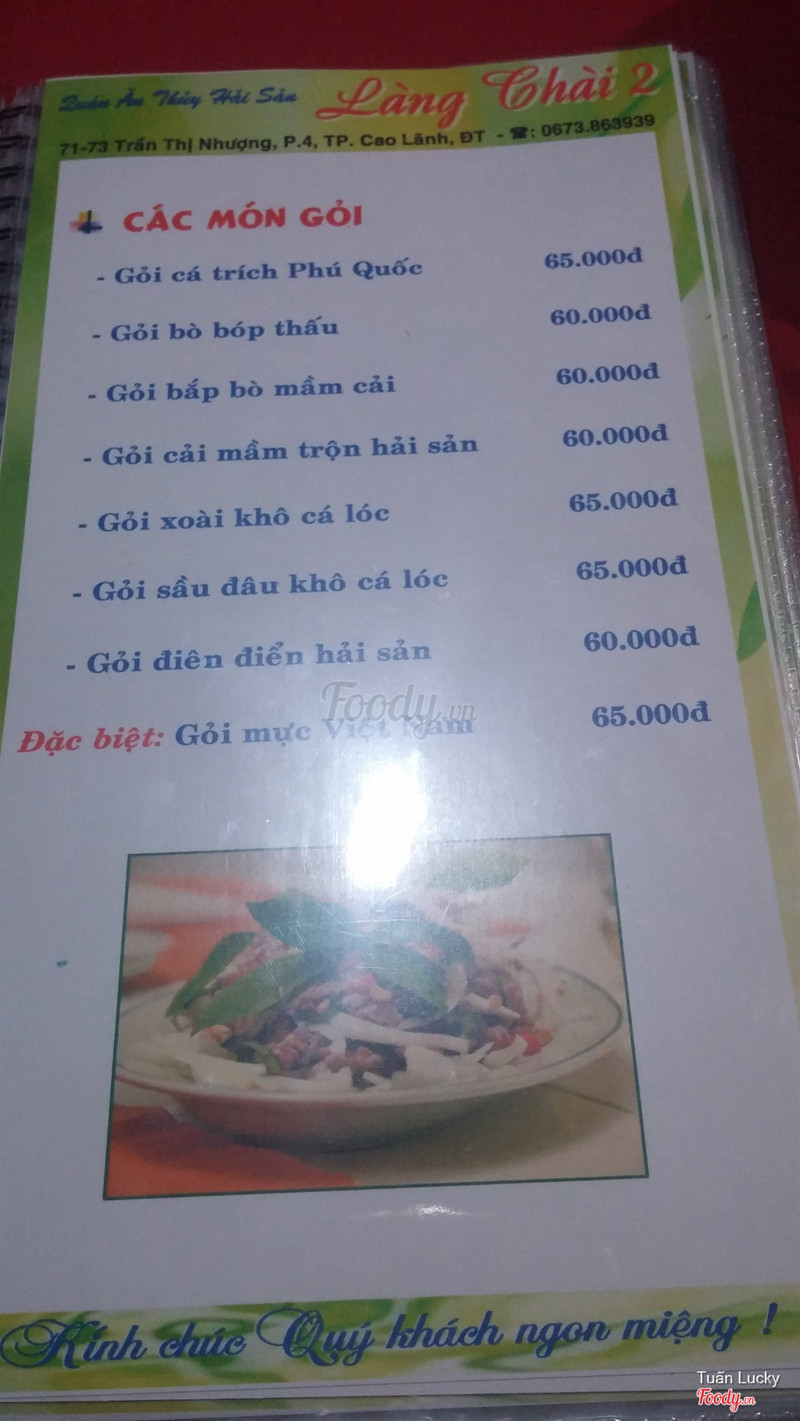 Quán Ăn Thủy Hải Sản Làng Chài 2
71-73 Trần Thị Nhượng, P.4, TP. Cao Lãnh, ĐT - ☎: 0673.863939
CÁC MÓN GỎI
- Gỏi cá trích Phú Quốc 65.000đ
- Gỏi bò bóp thấu 60.000đ
- Gỏi bắp bò mầm cải 60.000đ
- Gỏi cải mầm trộn hải sản 60.000đ
- Gỏi xoài khô cá lóc 65.000đ
- Gỏi sầu đâu khô cá lóc 65.000đ
- Gỏi điên điển hải sản 60.000đ
Foody.vn
Đặc biệt: Gỏi mực Việt Nam 65.000đ
Kính chúc Quý khách ngon miệng !
Tuấn Lucky
Foody.vn